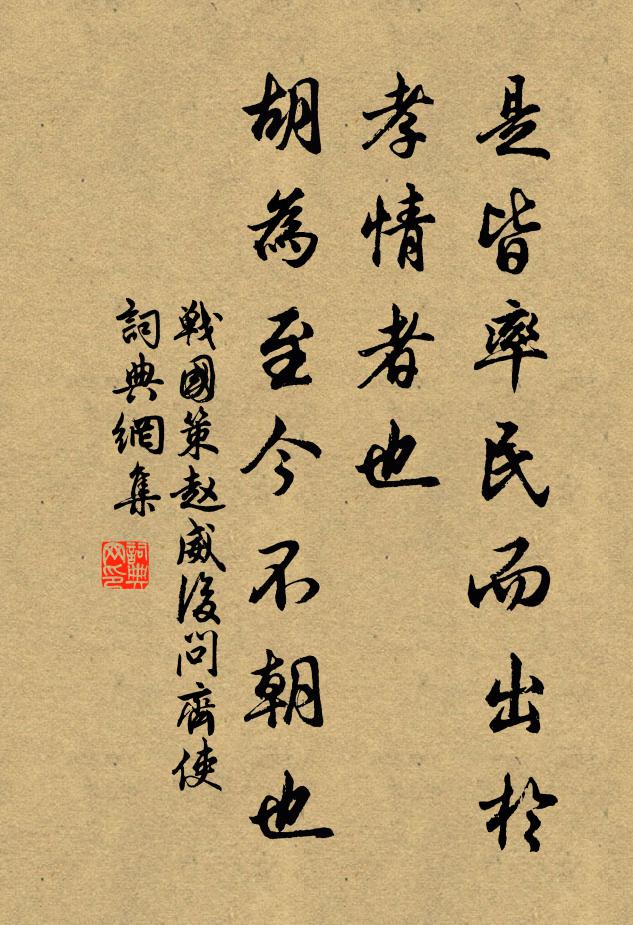 是皆率民而出於
孝情者也
胡為至今不朝也
戰國策赵威後問齊使
詞典網集
詞典網印